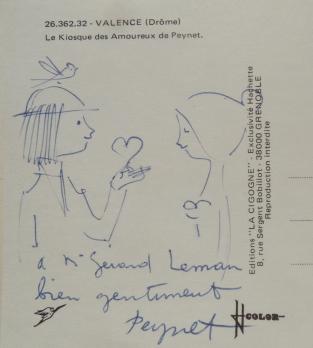 26.362.32 - VALENCE (Drôme)
Le Kiosque des Amoureux de Peynet.
Editions "LA CIGOGNE" - Exclusivité Hachette
8, rue Sergent Bobillot - 38000 GRENOBLE
Reproduction interdite
à Mr Gérard Leman
bien gentiment
Peynet
COLOR